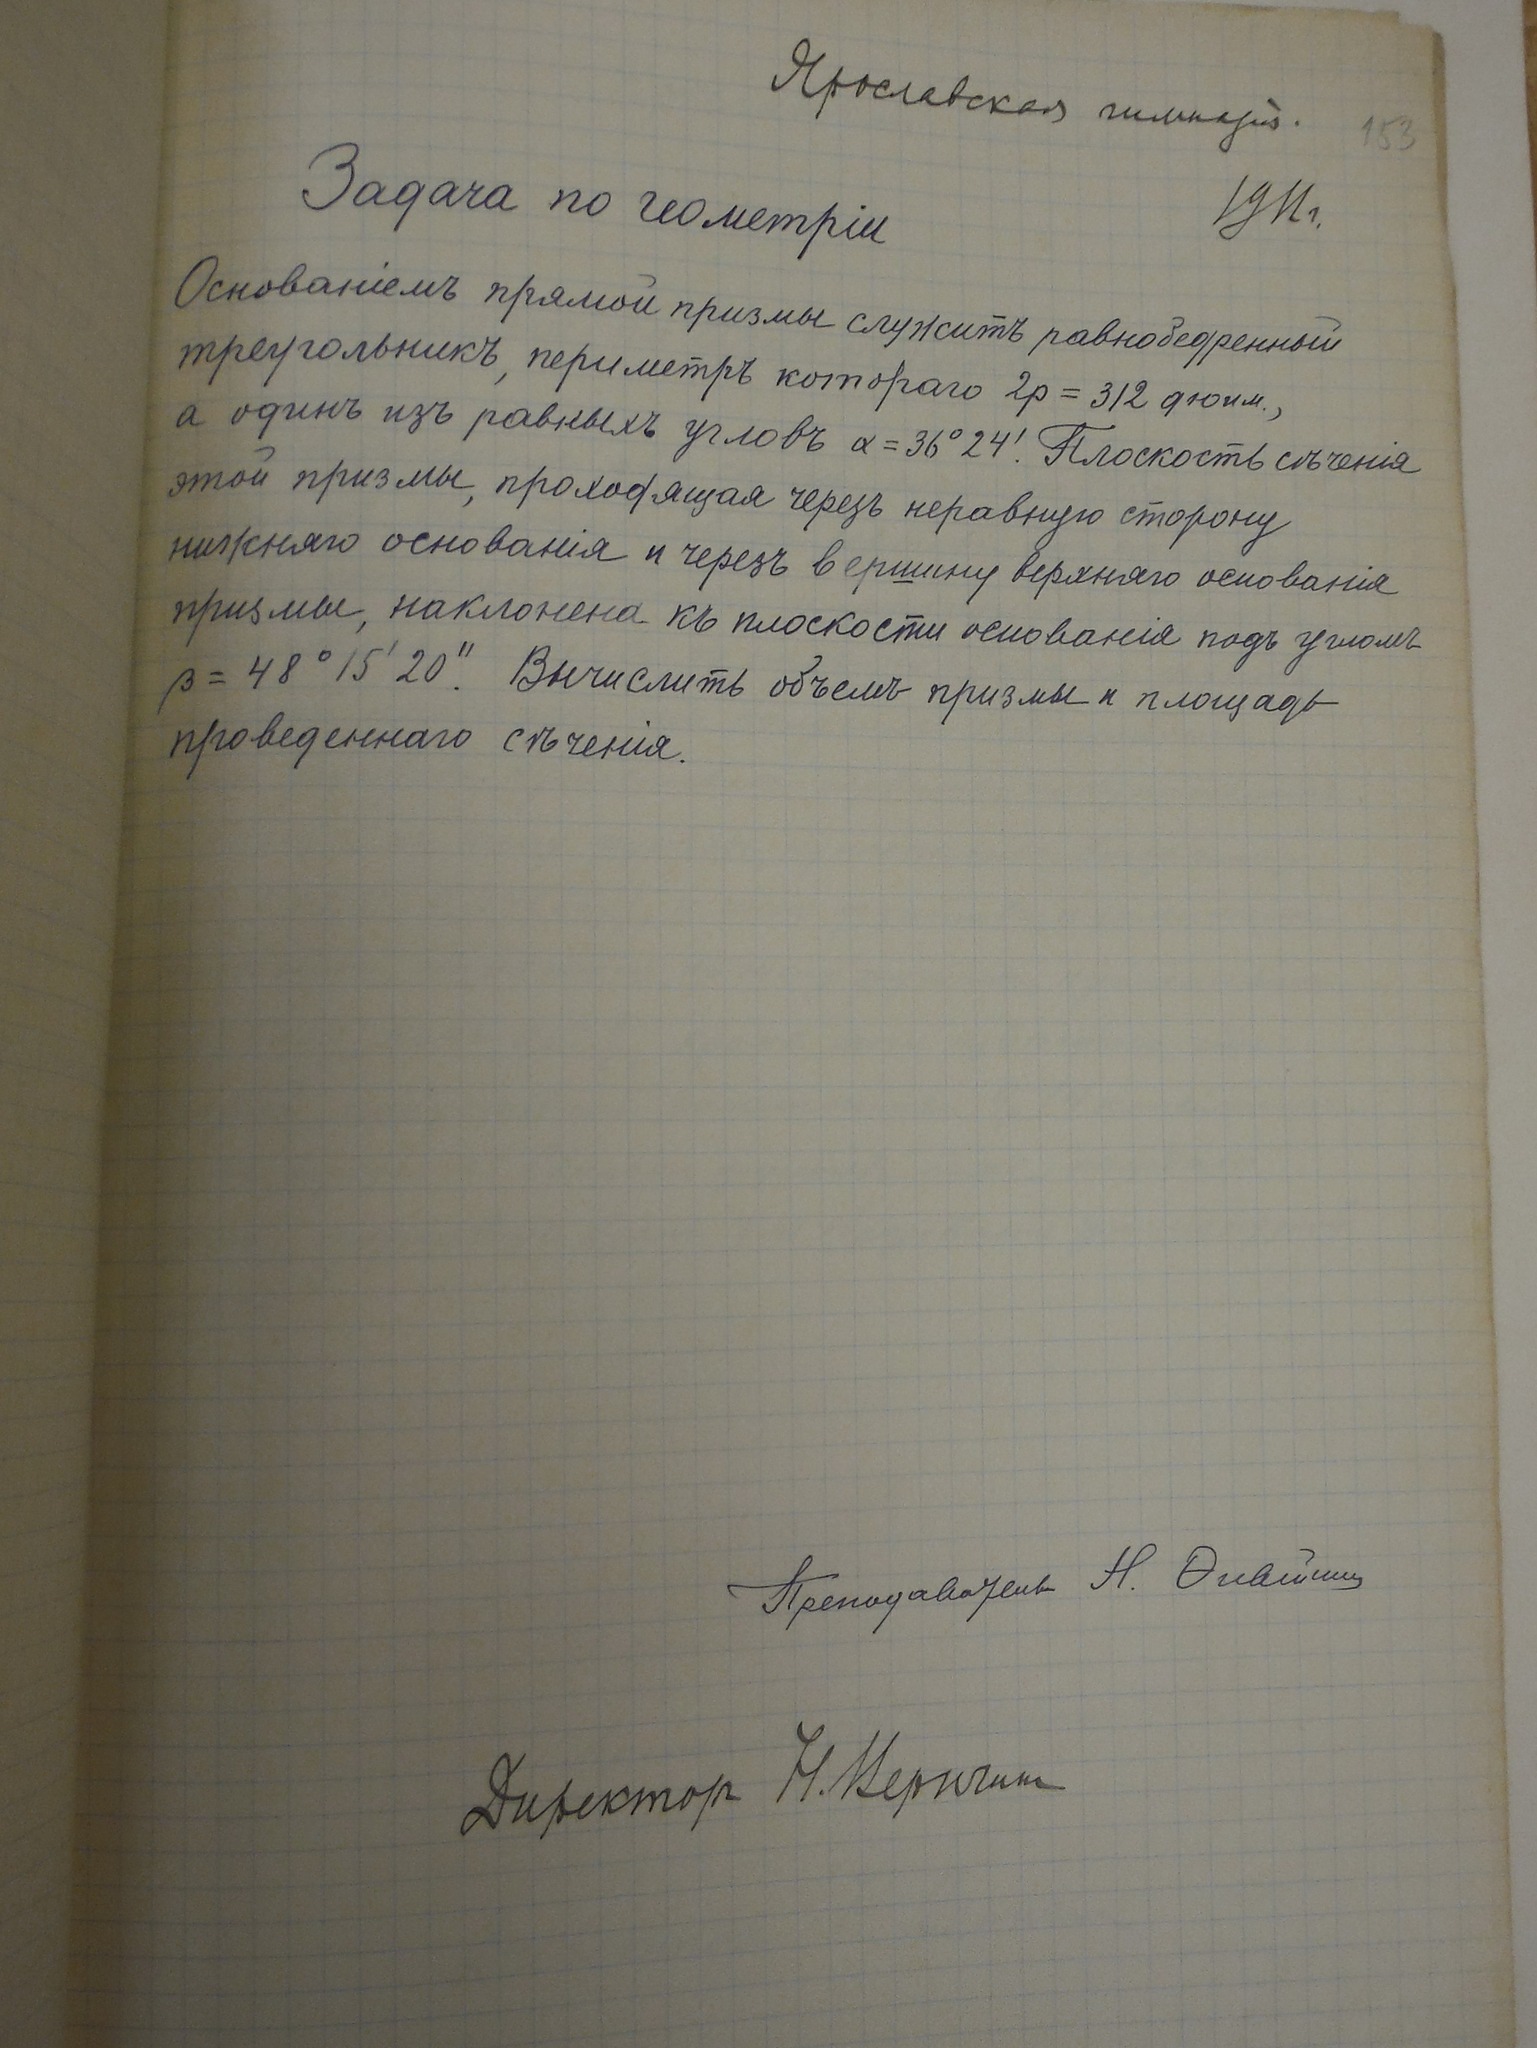 Ярославская гимназія.
153
1911 г.
Задача по геометріи
Основаніемъ прямой призмы служитъ равнобедренный
треугольникъ, периметръ котораго 2p = 312 дюйм.,
а одинъ изъ равныхъ угловъ α = 36° 24′. Плоскость сѣченія
этой призмы, проходящая черезъ неравную сторону
нижняго основанія и черезъ вершину верхняго основанія
призмы, наклонена къ плоскости основанія подъ угломъ
β = 48° 15′ 20″. Вычислить объемъ призмы и площадь
проведеннаго сѣченія.
Преподаватель Н.
Директоръ Н.